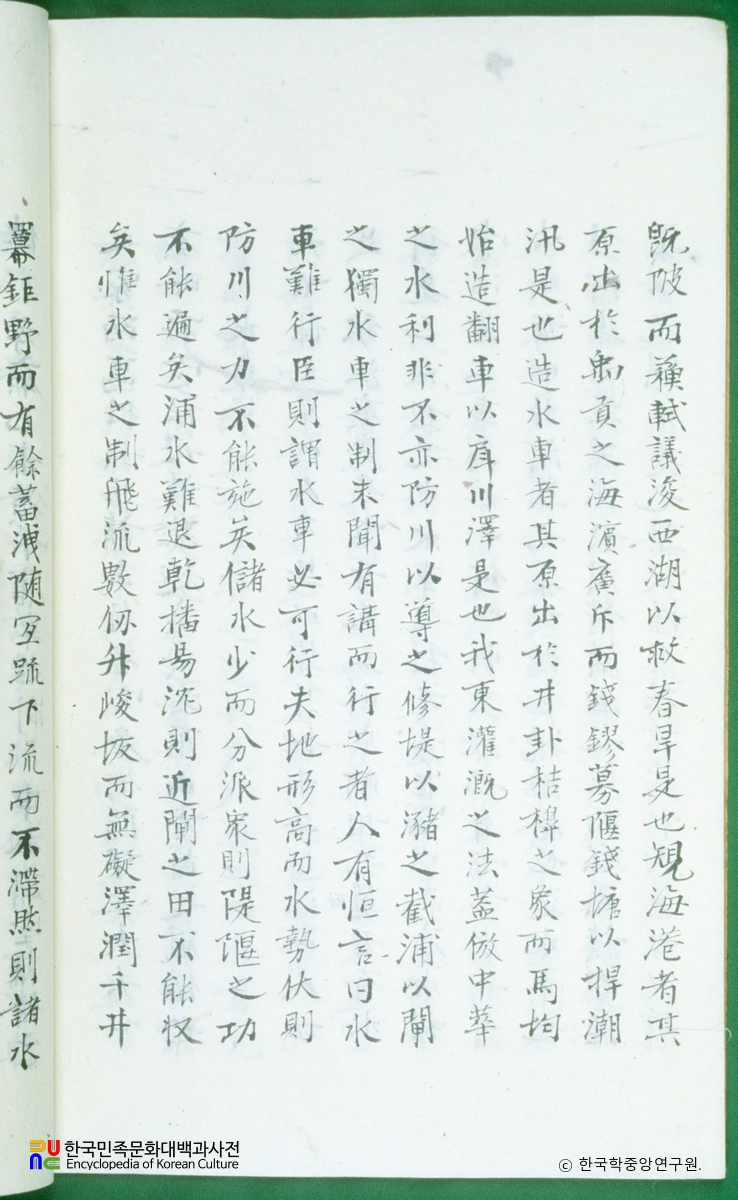 旣陂而蘇軾議浚西湖以救春旱是也規海港者其
原出於禹貢之海濱廣斥而錢鏐募偃錢塘以捍潮
汛是也造水車者其原出於井卦桔槹之象而馬均
始造翻車以庳川澤是也我東灌漑之法盖倣中華
之水利非不亦防川以導之修堤以瀦之截浦以閘
之獨水車之制未聞有講而行之者人有恒言曰水
車難行臣則謂水車必可行夫地形高而水勢伏則
防川之力不能施矣儲水少而分派衆則隄偃之功
不能遍矣浦水難退乾播易沈則近閘之田不能収
矣惟水車之制飛流數仞升峻坂而無礙澤潤千井
冪鉅野而有餘蓄洩随宜䟽下流而不滯然則諸水
한국민족문화대백과사전
Encyclopedia of Korean Culture
ⓒ 한국학중앙연구원.